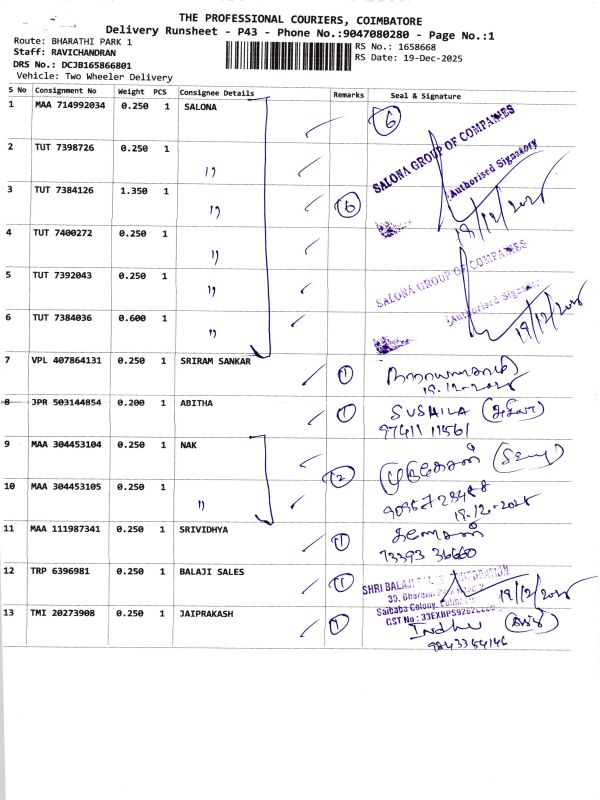 THE PROFESSIONAL COURIERS, COIMBATORE
Delivery Runsheet - P43 - Phone No.:9047080280 - Page No.:1
Route: BHARATHI PARK 1
RS No.: 1658668
Staff: RAVICHANDRAN
RS Date: 19-Dec-2025
DRS No.: DCJB165866801
Vehicle: Two Wheeler Delivery
S No Consignment No Weight PCS Consignee Details Remarks Seal & Signature
1 MAA 714992034 0.250 1 SALONA 6
SALONA GROUP OF COMPANIES
Authorised Signatory
19/12/2025
2 TUT 7398726 0.250 1 "
3 TUT 7384126 1.350 1 " 6
4 TUT 7400272 0.250 1 "
SALONA GROUP OF COMPANIES
Authorised Signatory
19/12/2025
5 TUT 7392043 0.250 1 "
6 TUT 7384036 0.600 1 "
7 VPL 407864131 0.250 1 SRIRAM SANKAR 1
19.12-2025
8 JPR 503144854 0.200 1 ABITHA 1 SUSHILA
97411 11561
9 MAA 304453104 0.250 1 NAK 2 முருகேசன்
10 MAA 304453105 0.250 1 "
19.12-2025
11 MAA 111987341 0.250 1 SRIVIDHYA 1 கணேசன்
73393 36660
12 TRP 6396981 0.250 1 BALAJI SALES 1 SHRI BALAJI
19/12/2025
Saibaba Colony,
GST No: 33EXHPS9262
13 TMI 20273908 0.250 1 JAIPRAKASH 1 Indhu
9843354146